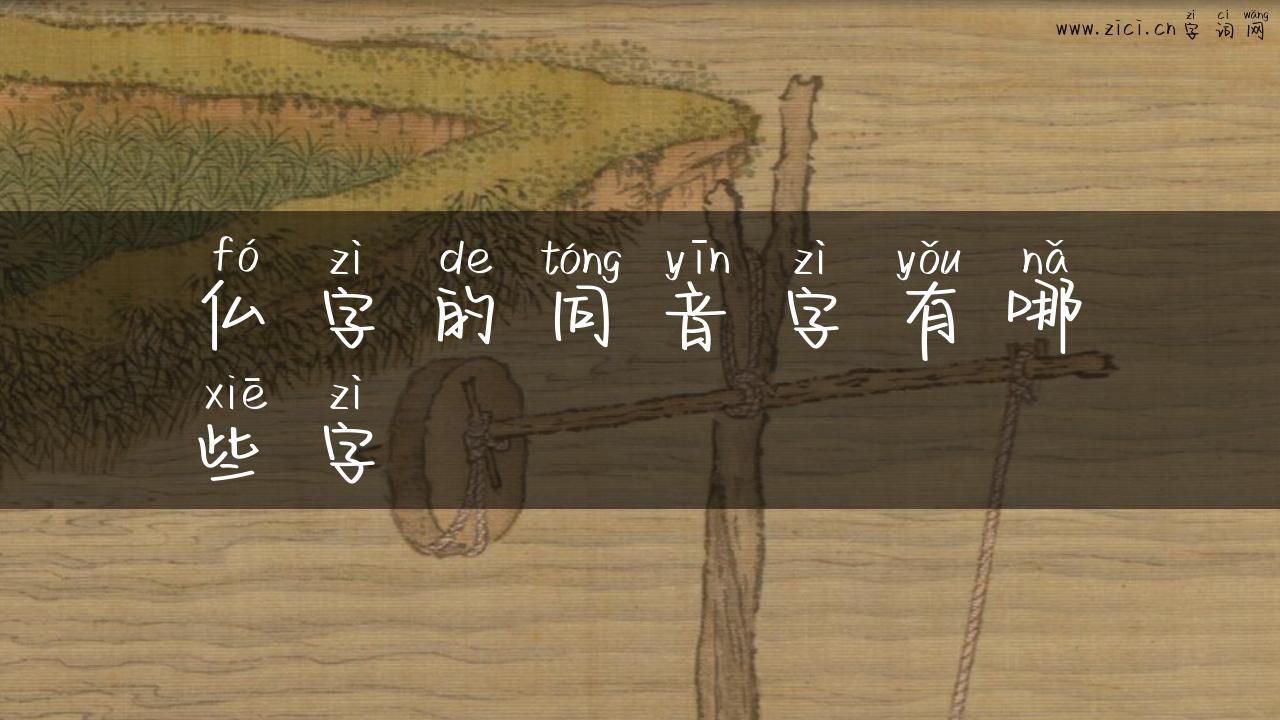 zì cí wǎng
www.zici.cn字词网
fó zì de tóng yīn zì yǒu nǎ
仏字的同音字有哪
xiē zì
些字